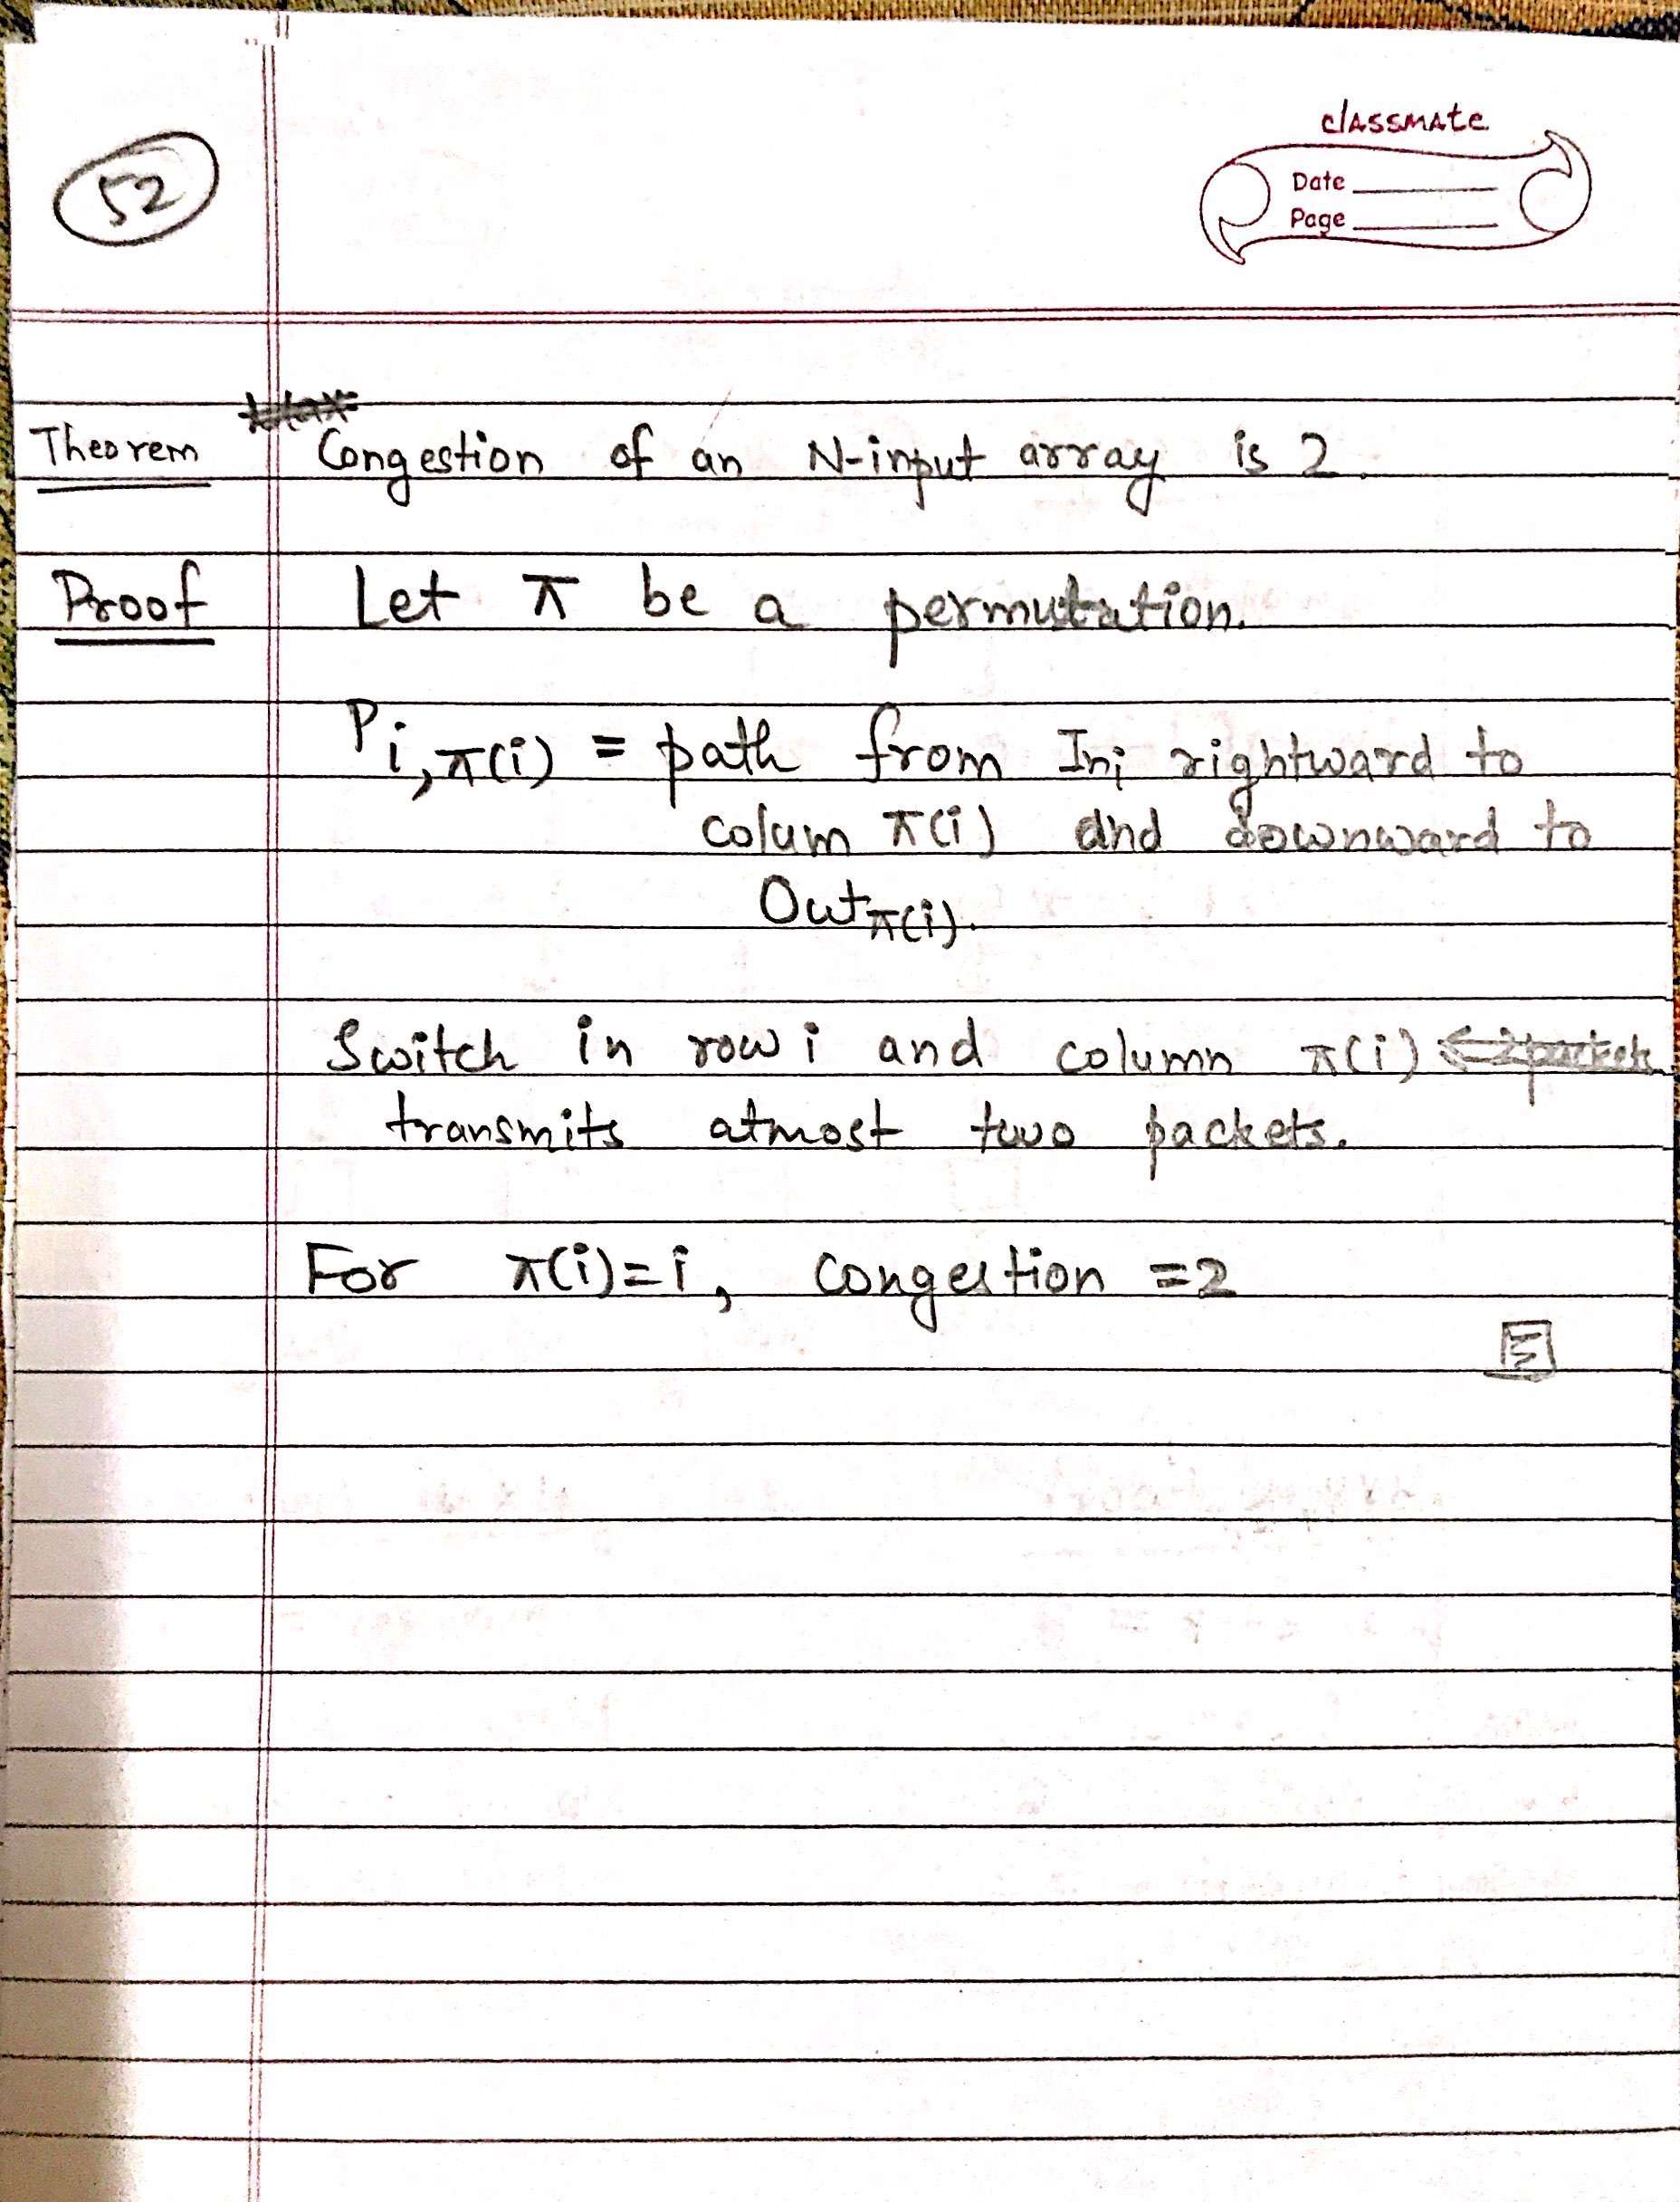 52
classmate
Date
Page
Theorem Congestion of an N-input array is 2.
Proof Let π be a permutation.
P i, π(i) = path from Ini rightward to
colum π(i) and downward to
Outπ(i).
Switch in row i and column π(i)
transmits atmost two packets.
For π(i)=i, congestion =2